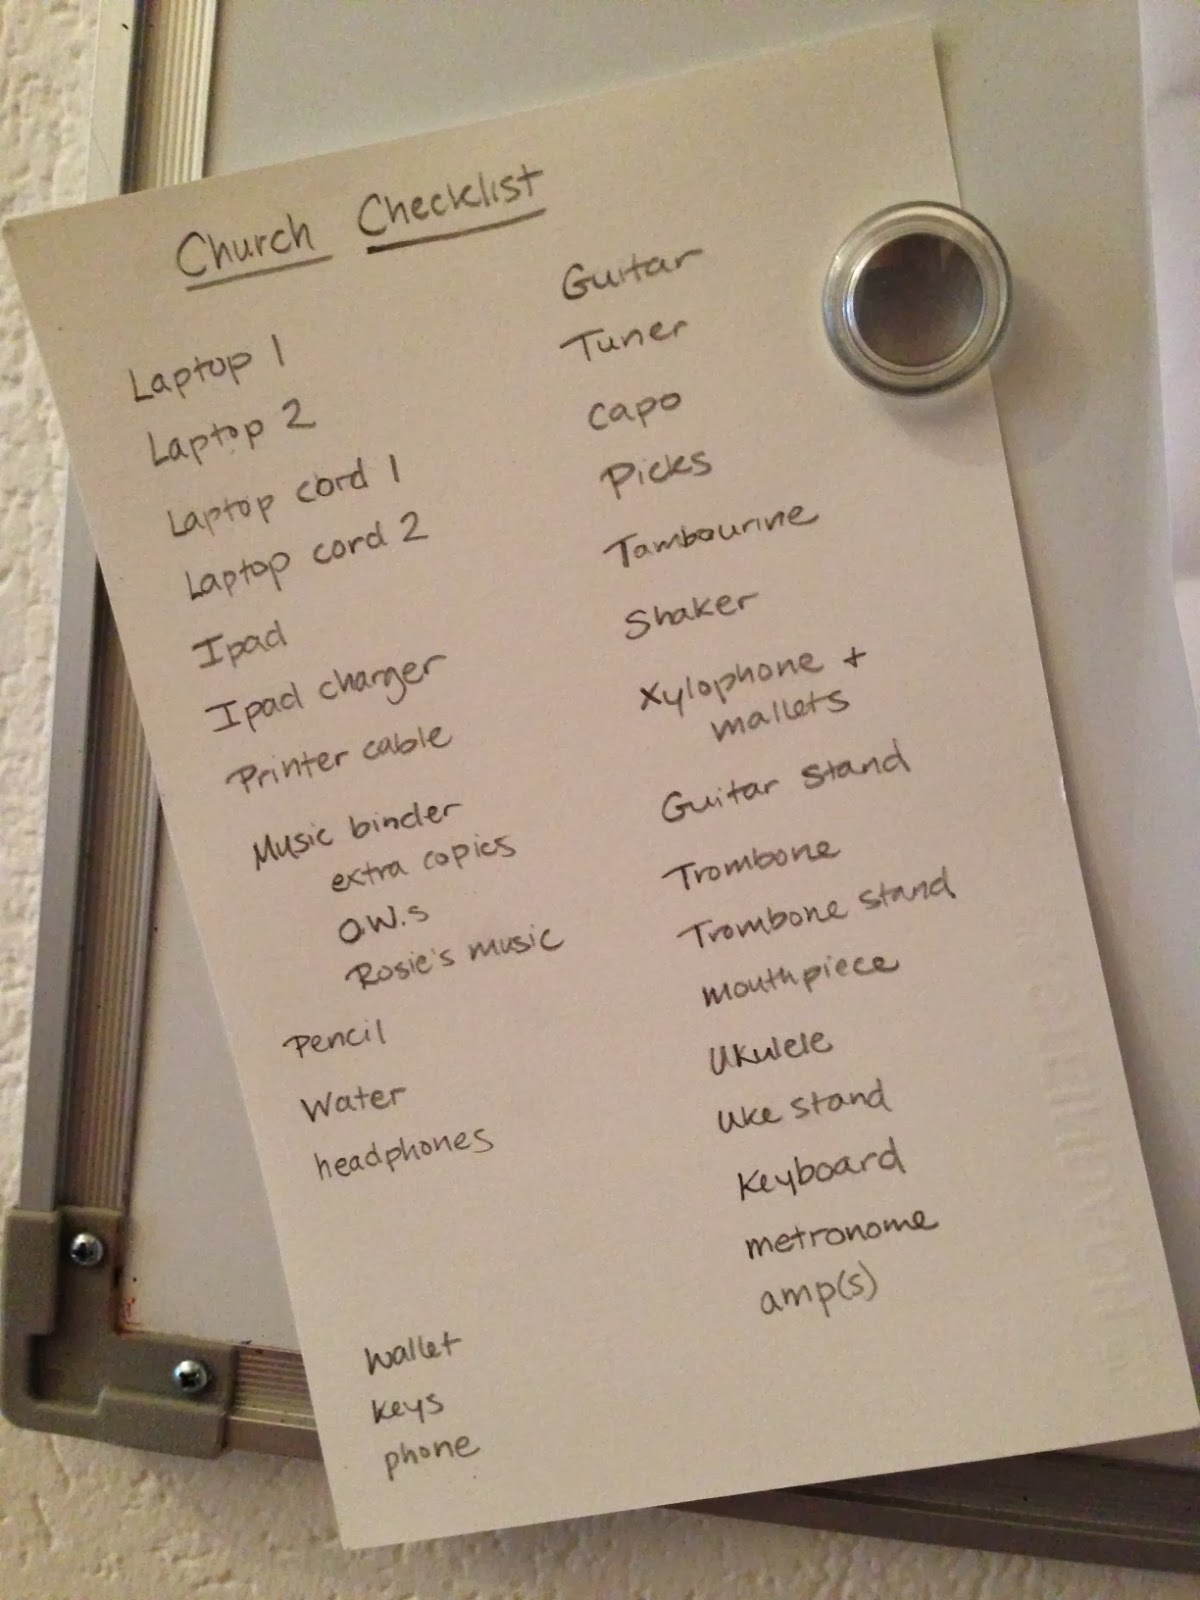 Church Checklist
Laptop 1
Laptop 2
Laptop cord 1
Laptop cord 2
Ipad
Ipad charger
Printer cable
Music binder
extra copies
O.W.s
Rosie's music
Pencil
Water
headphones
wallet
keys
phone
Guitar
Tuner
capo
Picks
Tambourine
Shaker
Xylophone +
mallets
Guitar stand
Trombone
Trombone stand
mouthpiece
Ukulele
Uke stand
Keyboard
metronome
amp(s)